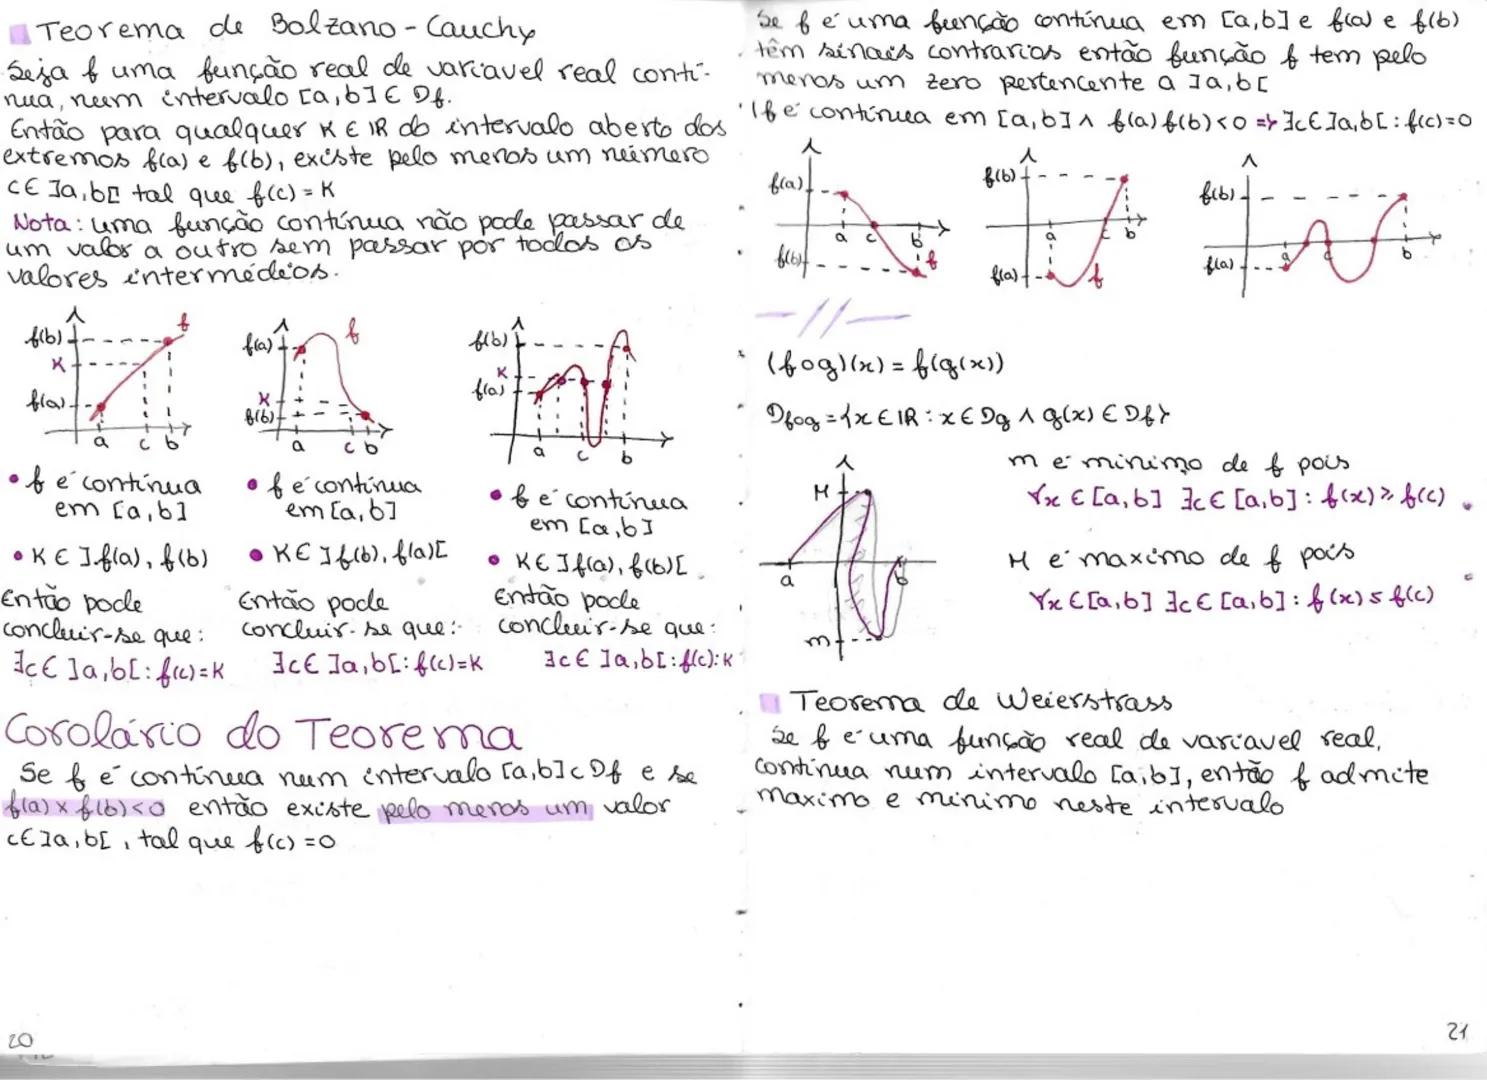 Teorema de Bolzano-Cauchy
Seja f uma função real de variavel real contí-
nua, num intervalo [a,b] ∈ Df.
Então para qualquer K ∈ IR do intervalo aberto dos
extremos f(a) e f(b), existe pelo menos um número
c ∈ ]a,b[ tal que f(c) = K
Nota: uma função contínua não pode passar de
um valor a outro sem passar por todos os
valores intermédios.
f(b)
K
f(a)
a c b
f
f(a)
K
f(b)
a c b
f
f(b)
K
f(a)
a c b
• f é contínua
em [a,b]
• K ∈ ]f(a), f(b)
Então pode
concluir-se que:
∃c ∈ ]a,b[: f(c)=K
• f é contínua
em [a,b]
• K ∈ ]f(b), f(a)[
Então pode
concluir-se que:
∃c ∈ ]a,b[: f(c)=K
• f é contínua
em [a,b]
• K ∈ ]f(a), f(b)[
Então pode
concluir-se que:
∃c ∈ ]a,b[: f(c):K
Corolário do Teorema
Se f é contínua num intervalo [a,b] ⊂ Df e se
f(a) × f(b) < 0 então existe pelo menos um valor
c ∈ ]a,b[, tal que f(c) = 0
20
Se f é uma função contínua em [a,b] e f(a) e f(b)
têm sinais contrarios então função f tem pelo
menos um zero pertencente a ]a,b[
f é contínua em [a,b] ∧ f(a) f(b) < 0 => ∃c ∈ ]a,b[ : f(c)=0
f(a)
f(b)
a c b
f
f(b)
f(a)
a c b
f
f(b)
f(a)
a c b
-//-
(fog)(x) = f(g(x))
Dfog = {x ∈ IR : x ∈ Dg ∧ g(x) ∈ Df}
M
a
b
m
m é minimo de f pois
∀x ∈ [a,b] ∃c ∈ [a,b] : f(x) ≥ f(c)
M é maximo de f pois
∀x ∈ [a,b] ∃c ∈ [a,b] : f(x) ≤ f(c)
Teorema de Weierstrass
Se f é uma função real de variavel real,
contínua num intervalo [a,b], então f admite
maximo e minimo neste intervalo
21